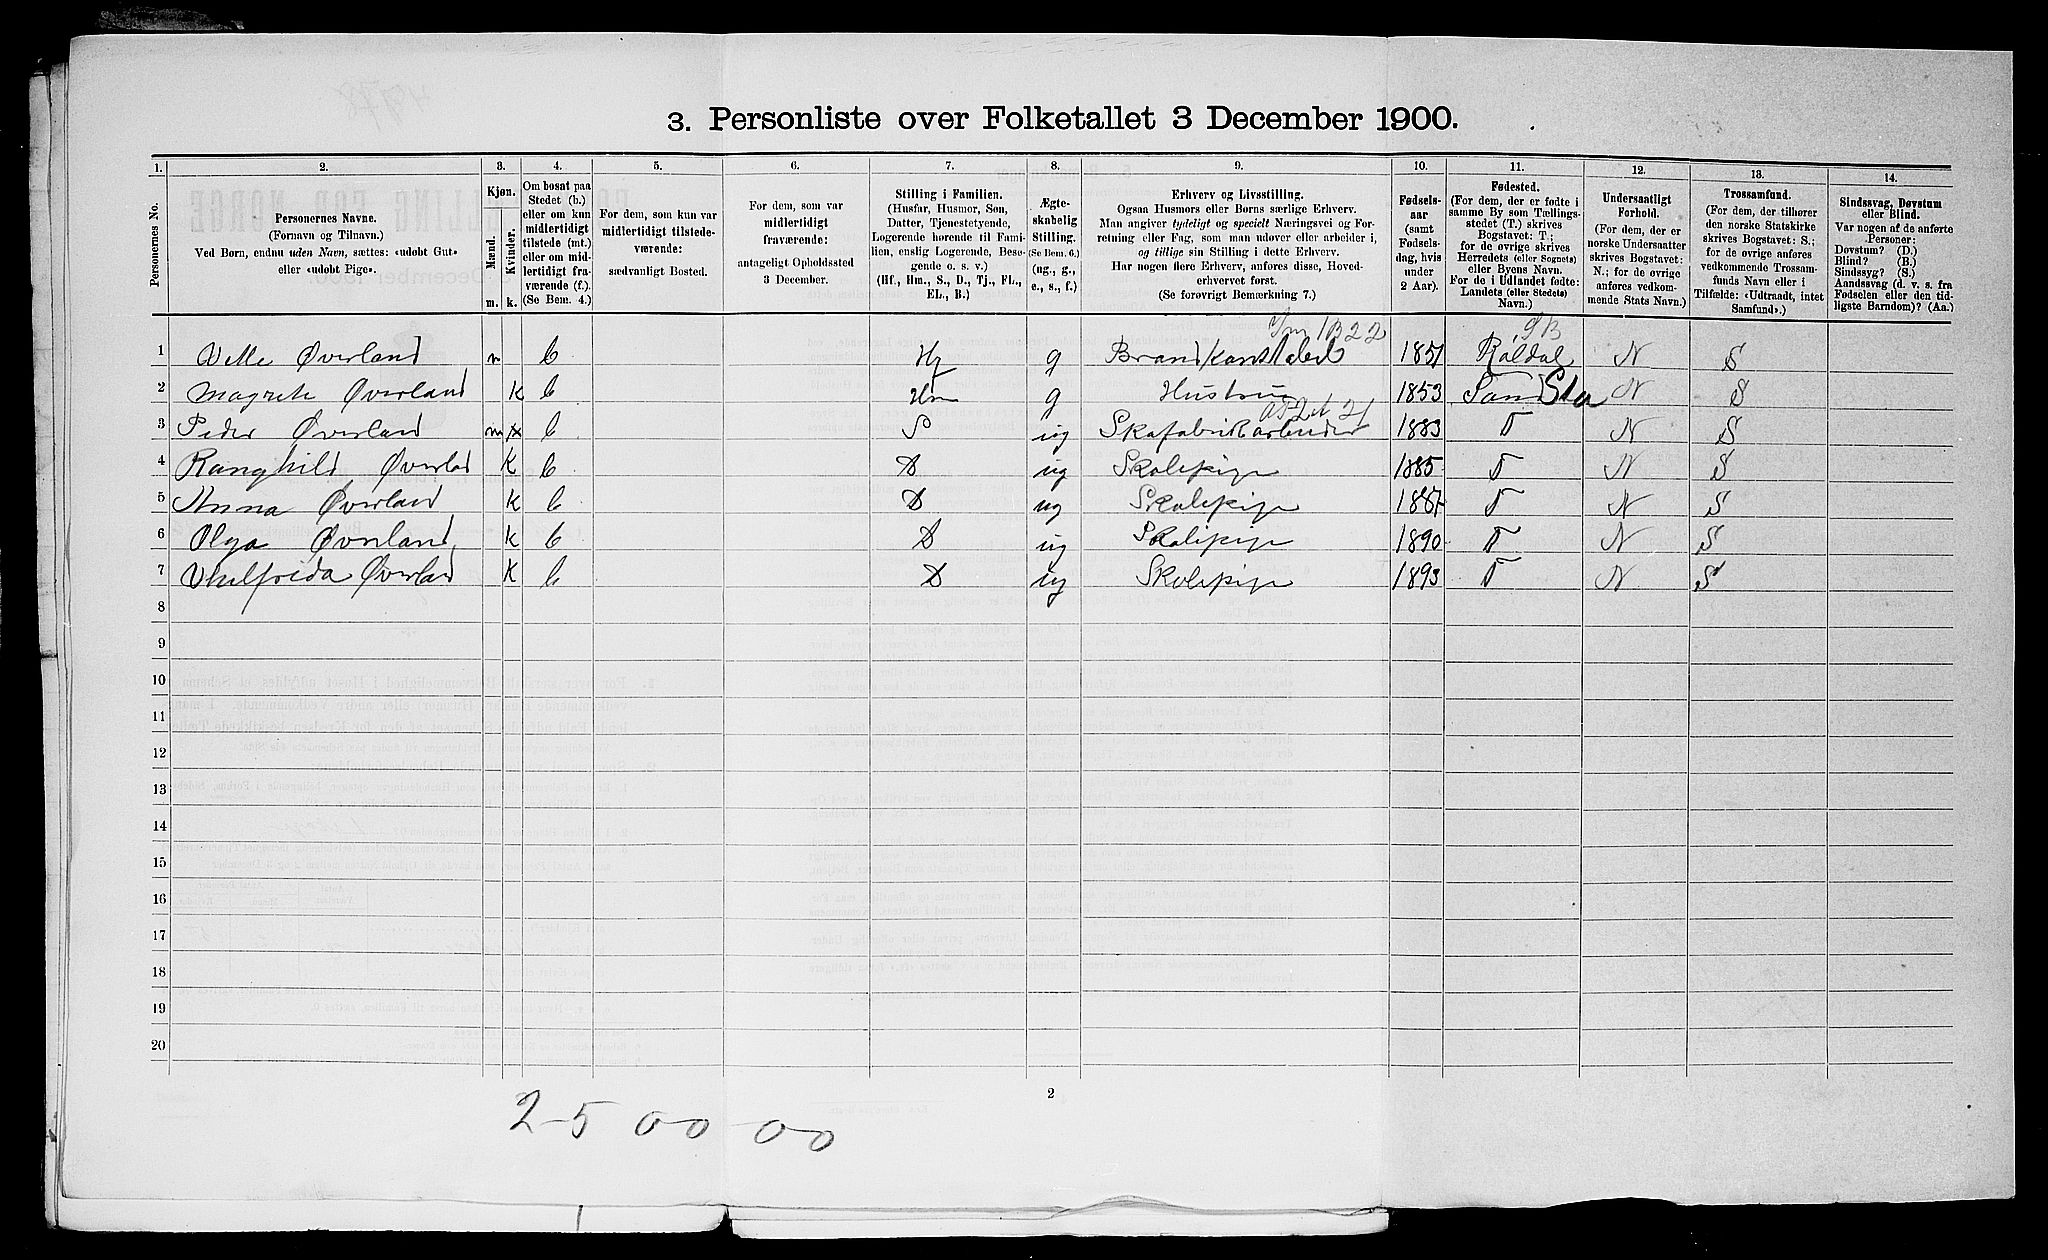 3. Personliste over Folketallet 3 December 1900.
1. 2. 3. 4. 5. 6. 7. 8. 9. 10. 11. 12. 13. 14.
Personernes No.
Personernes Navne.
(Fornavn og Tilnavn.)
Ved Børn, endnu uden Navn, sættes: «udøbt Gut»
eller «udøbt Pige».
Kjøn.
Mænd.
Kvinder.
m. k.
Om bosat paa
Stedet (b.)
eller om kun
midlertidigt
tilstede (mt.)
eller om mid-
lertidigt fra-
værende (f.).
(Se Bem. 4.)
For dem, som kun var
midlertidigt tilstede-
værende:
sædvanligt Bosted.
For dem, som var
midlertidigt
fraværende:
antageligt Opholdssted
3 December.
Stilling i Familien.
(Husfar, Husmor, Søn,
Datter, Tjenestetyende,
Logerende hørende til Fami-
lien, enslig Logerende, Besø-
gende o. s. v.)
(Hf., Hm., S., D., Tj., FL.,
EL., B.)
Ægte-
skabelig
Stilling.
(Se Bem. 6.)
(ug., g.,
e., s., f.)
Erhverv og Livsstilling.
Ogsaa Husmors eller Børns særlige Erhverv.
Man angiver tydeligt og specielt Næringsvei og For-
retning eller Fag, som man udøver eller arbeider i,
og tillige sin Stilling i dette Erhverv.
Har nogen flere Erhverv, anføres disse, Hoved-
erhvervet først.
(Se forøvrigt Bemærkning 7.)
Fødsels-
aar
(samt
Fødsels-
dag, hvis
under
2 Aar).
Fødested.
(For dem, der er fødte i
samme By som Tællings-
stedet (T.) skrives
Bogstavet: T.;
for de øvrige skrives
Herredets (eller Sognets)
eller Byens Navn.
For de i Udlandet fødte:
Landets (eller Stedets)
Navn.)
Undersaatligt
Forhold.
(For dem, der er
norske Undersaatter
skrives Bogstavet:
N.; for de øvrige
anføres vedkom-
mende Stats Navn.)
Trossamfund.
(For dem, der tilhører
den norske Statskirke
skrives Bogstavet: S.;
for de øvrige anføres
vedkommende Trossam-
funds Navn eller i
Tilfælde: «Udtraadt, intet
Samfund».)
Sindssvag, Døvstum
eller Blind.
Var nogen af de anførte
Personer:
Døvstum? (D.)
Blind? (B.)
Sindssyg? (S.)
Aandssvag (d. v. s. fra
Fødselen eller den tid-
ligste Barndom)? (Aa.)
1 Øverland m b Hf g Brandkonstabel 1851 Røldal N S
2 Magrete Øverland K b Hm g Hustru 1853 Sand Sta N S
3 Peder Øverland m b S ug 1883 T N S
4 Ranghild Øverlad K b D ug Skolepige 1885 T N S
5 Anna Øverland K b D ug Skolepige 1887 T N S
6 Olga Øverland K b D ug Skolepige 1890 T N S
7 Øverlad K b D ug Skolepige 1893 T N S
8
9
10
11
12
13
14
15
16
17
18
19
20
2
25 00-00